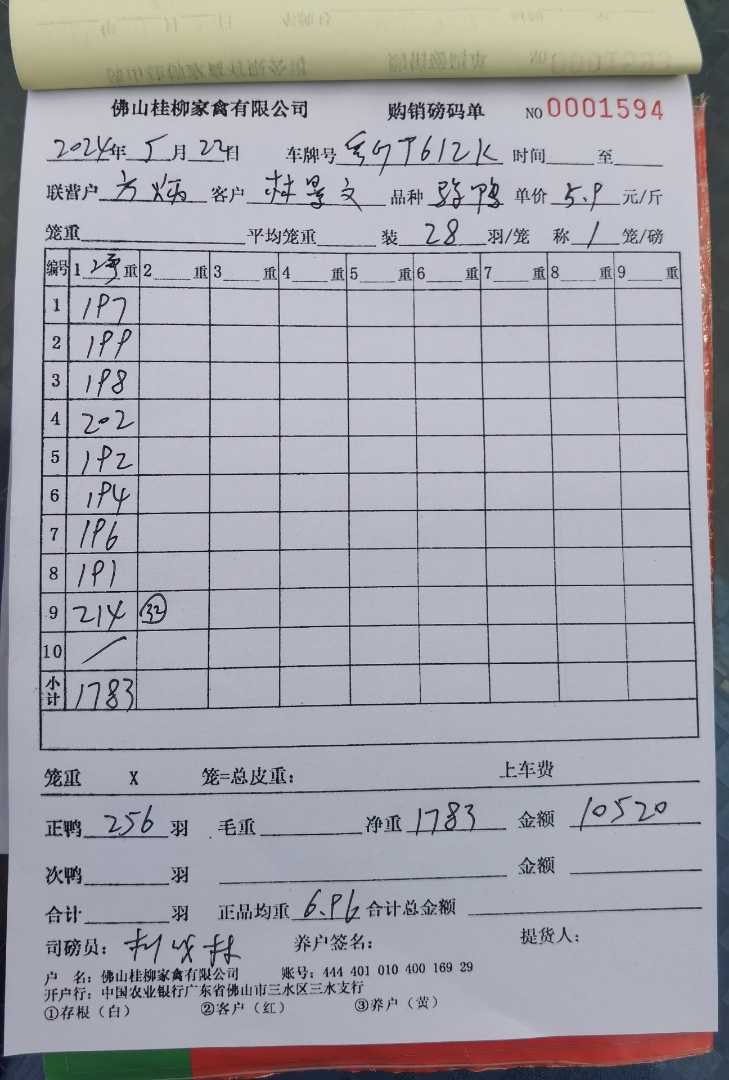 佛山桂柳家禽有限公司 购销磅码单 NO 0001594
2024年 5月 22日 车牌号 粤GT612K 时间 至
联营户 方炳 客户 林景文 品种 鸭 单价 5.9 元/斤
笼重 平均笼重 装 28 羽/笼 称 1 笼/磅
编号 1 2号 重 2 重 3 重 4 重 5 重 6 重 7 重 8 重 9 重
1 197
2 199
3 198
4 202
5 192
6 194
7 196
8 191
9 214 32
10 /
小计 1783
笼重 X 笼=总皮重: 上车费
正鸭 256 羽 毛重 净重 1783 金额 10520
次鸭 羽 金额
合计 羽 正品均重 6.96 合计总金额
司磅员: 养户签名: 提货人:
户 名: 佛山桂柳家禽有限公司 账号: 444 401 010 400 169 29
开户行: 中国农业银行广东省佛山市三水区三水支行
①存根(白) ②客户(红) ③养户(黄)